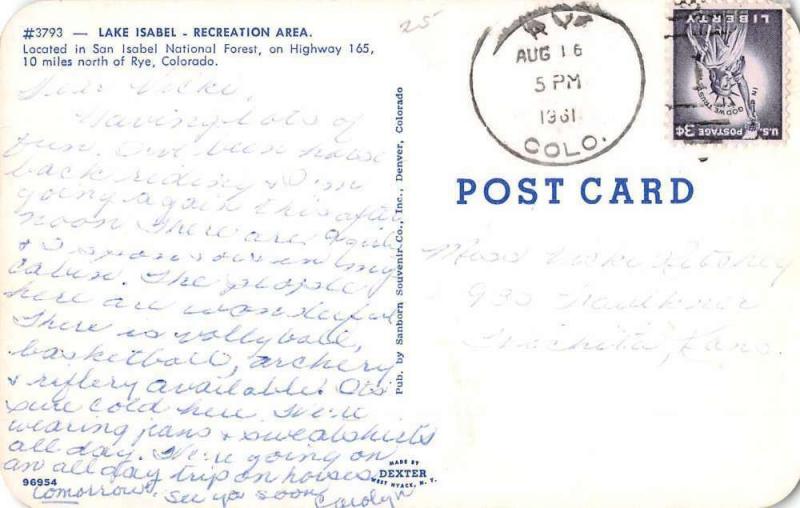 #3793 — LAKE ISABEL - RECREATION AREA.
Located in San Isabel National Forest, on Highway 165,
10 miles north of Rye, Colorado.
25
Dear Vicki,
Having lots of
fun. I've been horse
back riding & I'm
going again this after
noon. There are 9 girls
& 3 sponsors in my
cabin. The people
here are wonderful.
There is vollyball,
basketball, archery
& riflery available. It's
sure cold here. We're
wearing jeans & sweatshirts
all day. We're going on
an all day trip on horses
tomorrow. See ya soon,
Carolyn
96954
Pub. by Sanborn Souvenir Co., Inc., Denver, Colorado
MADE BY
DEXTER
WEST NYACK, N. Y.
RYE
AUG 16
5 PM
1961
COLO.
LIBERTY
IN GOD WE TRUST
U.S. POSTAGE 3¢
POST CARD
Miss Vicki
930 Faulkner
Wichita, Kans.